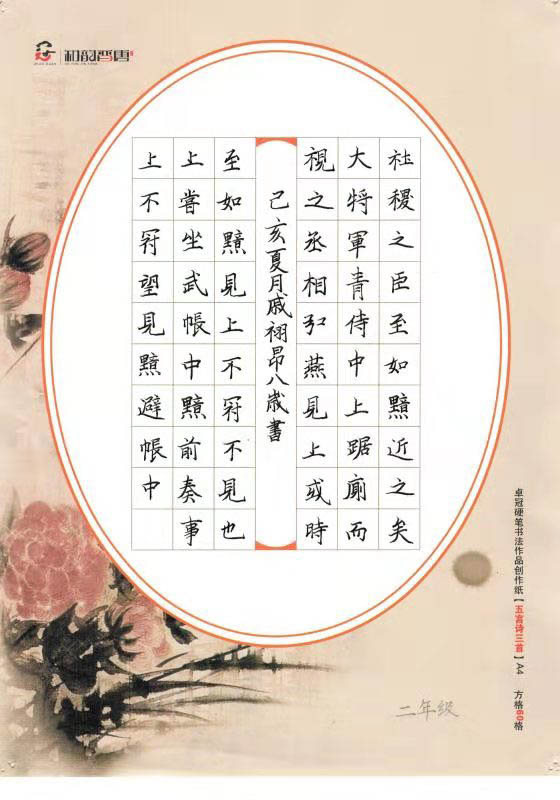 和韵晋唐
社稷之臣至如黯近之矣
大将軍青侍中上踞廁而
視之丞相弘燕見上或時
己亥夏月戚栩昂八歲書
至如黯見上不冠不見也
上嘗坐武帳中黯前奏事
上不冠望見黯避帳中
卓冠硬笔书法作品创作纸【五言诗三首】A4 方格60格
二年级